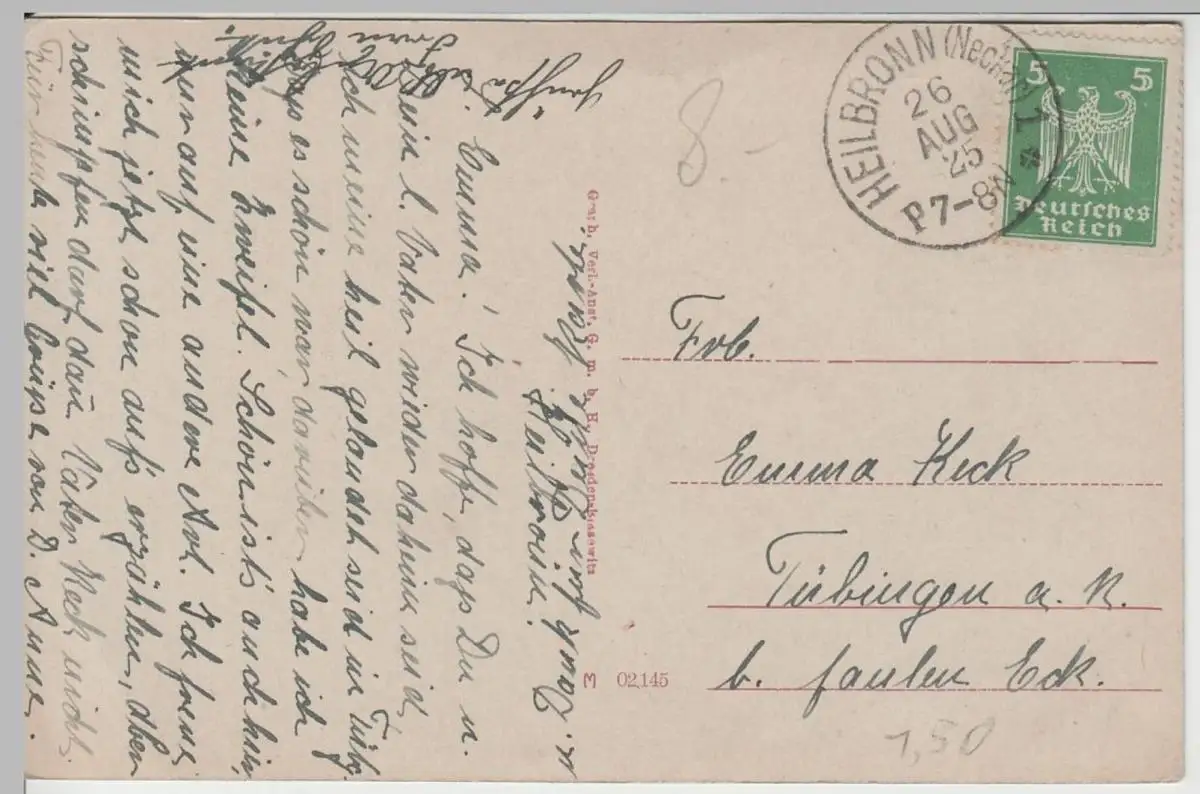 Emma! Ich hoffe, dass Du u.
Dein l. Vater wieder daheim seid,
ich meine heil gelandet seid in Tüb.
Dass es schön war, darüber habe ich
keine Zweifel. Schön ist's auch hier,
nur auf eine andere Art. Ich freue
mich jetzt schon auf's erzählen, aber
schimpfen darf dann Vater Keck nicht.
Für heute viel Grüsse von D. Anne.
Heilbronn.
HEILBRONN (Neckar) 1
26
AUG
25
P 7-8N
5 5
Deutsches
Reich
8.-
Frl.
Emma Keck
Tübingen a. N.
b. faulen Eck.
1,50
Graph. Verl.-Anst. G. m. b. H., Dresden-Blasewitz
M 02,145